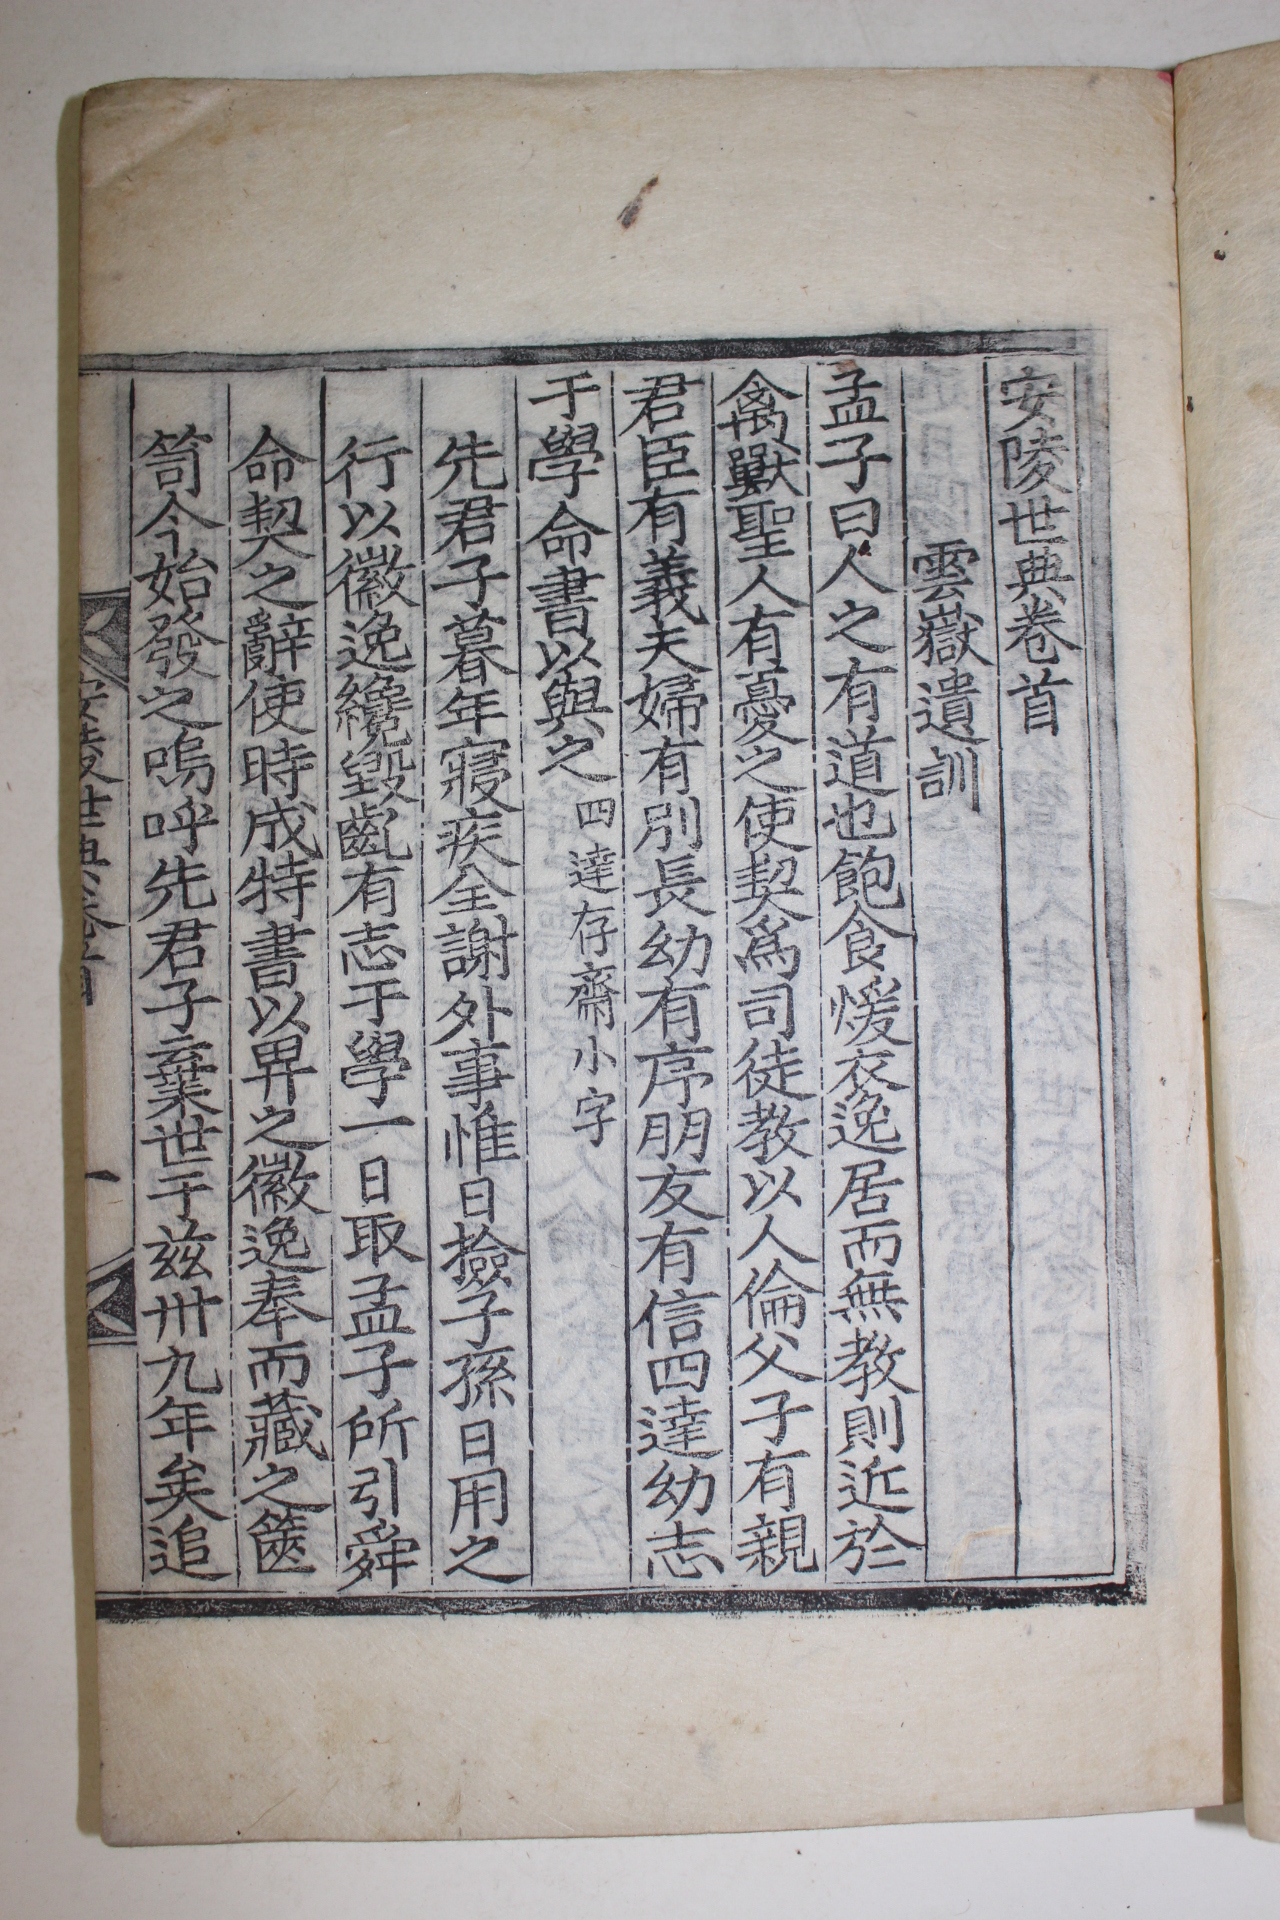 安陵世典卷首
雲嶽遺訓
孟子曰人之有道也飽食煖衣逸居而無教則近於
禽獸聖人有憂之使契爲司徒教以人倫父子有親
君臣有義夫婦有別長幼有序朋友有信四達幼志
于學命書以與之四達存齋小字
先君子暮年寢疾全謝外事惟日撿子孫日用之
行以徽逸纔毀齓有志于學一日取孟子所引舜
命契之辭使時成特書以畀之徽逸奉而藏之篋
笥今始發之嗚呼先君子棄世于玆卅九年矣追
安陵世典卷首
一